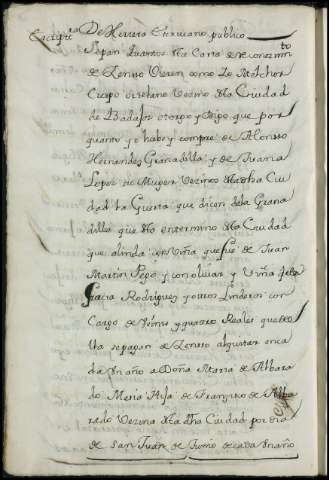 De Herrera Escrivano publico
Sepan quantos esta Carta de reconozimto
de Zenso Vieren como Yo Melchor
Crespo ortelano Vezino desta Ciudad
de Badajoz otorgo y Digo que por
quanto yo hube y compre de Alonso
Hernandez Granadilla y de Juana
Lopez su Muger Vezinos desta dha Ciu
dad la Guerta que dicen de la Grana
dilla que es en termino desta Ciudad
que alinda con Viña que fue de Juan
Martin Pego y con olivar y Viña de la
Gracia Rodriguez y otros Linderos con
Cargo de Veinte y quatro Reales que
se pagan de Zenso al quitar en ca
da Un año a Doña Maria de Albara
do Mexia Hija de Francisco de Alba
rado Vezina desta dha Ciudad por dia
de San Juan de Junio de cada Un año